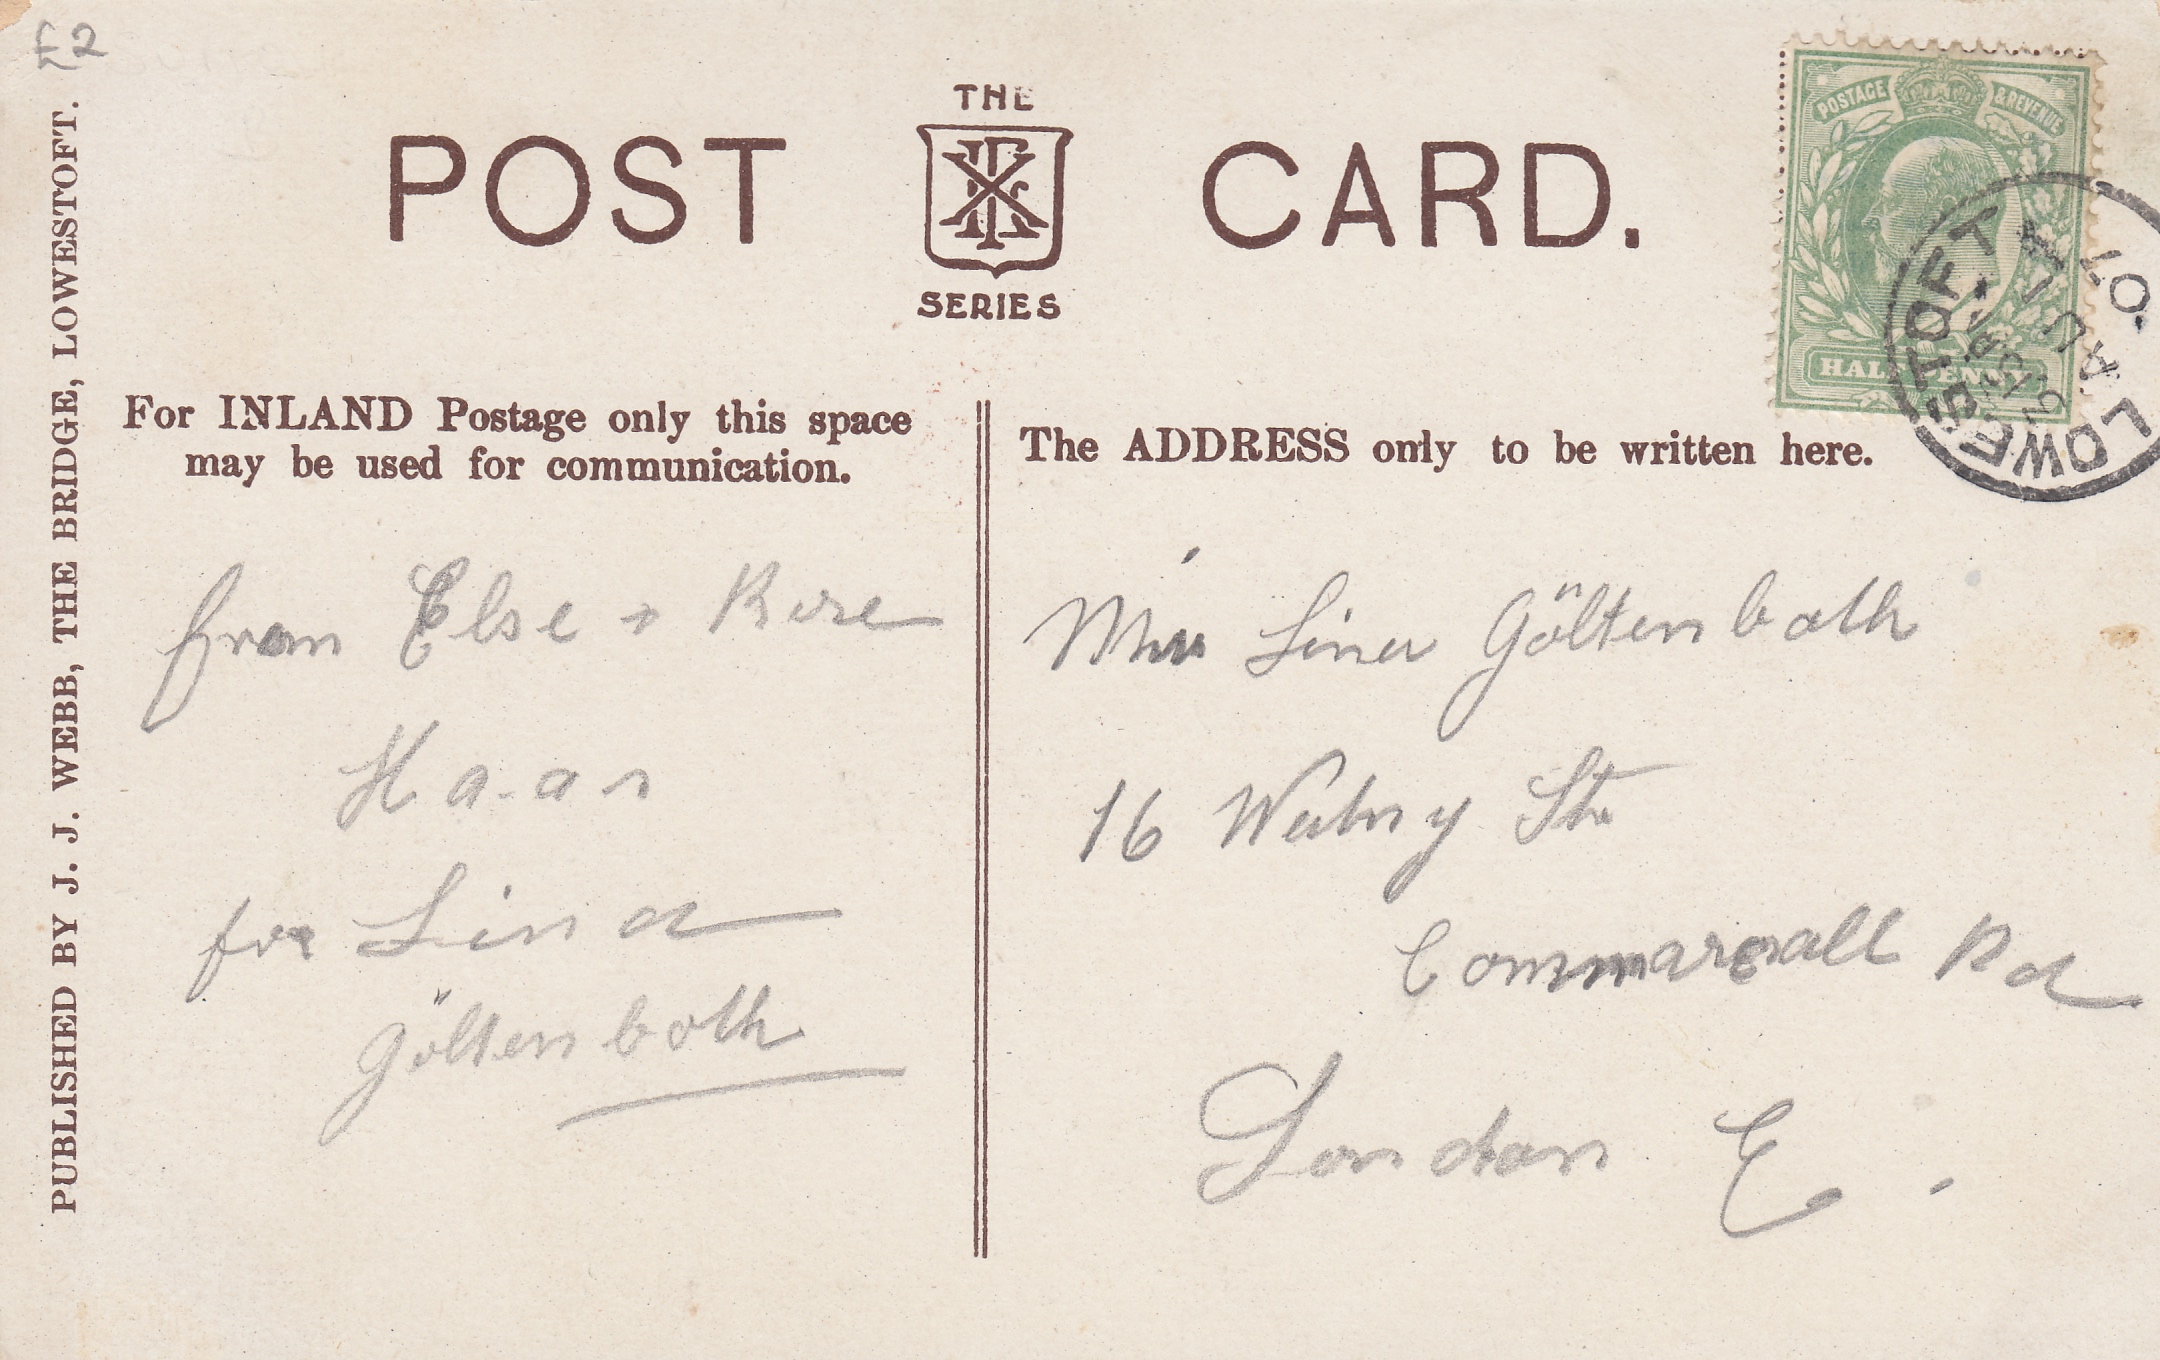 £2
PUBLISHED BY J. J. WEBB, THE BRIDGE, LOWESTOFT.
POST CARD.
THE
SERIES
POSTAGE & REVENUE
HALFPENNY
LOWESTOFT
For INLAND Postage only this space
may be used for communication.
from Else +
Haas
for Lina
Göltenboth
The ADDRESS only to be written here.
Miss Lina Göltenboth
16 Watny Str
Commarcall Rd
London E.